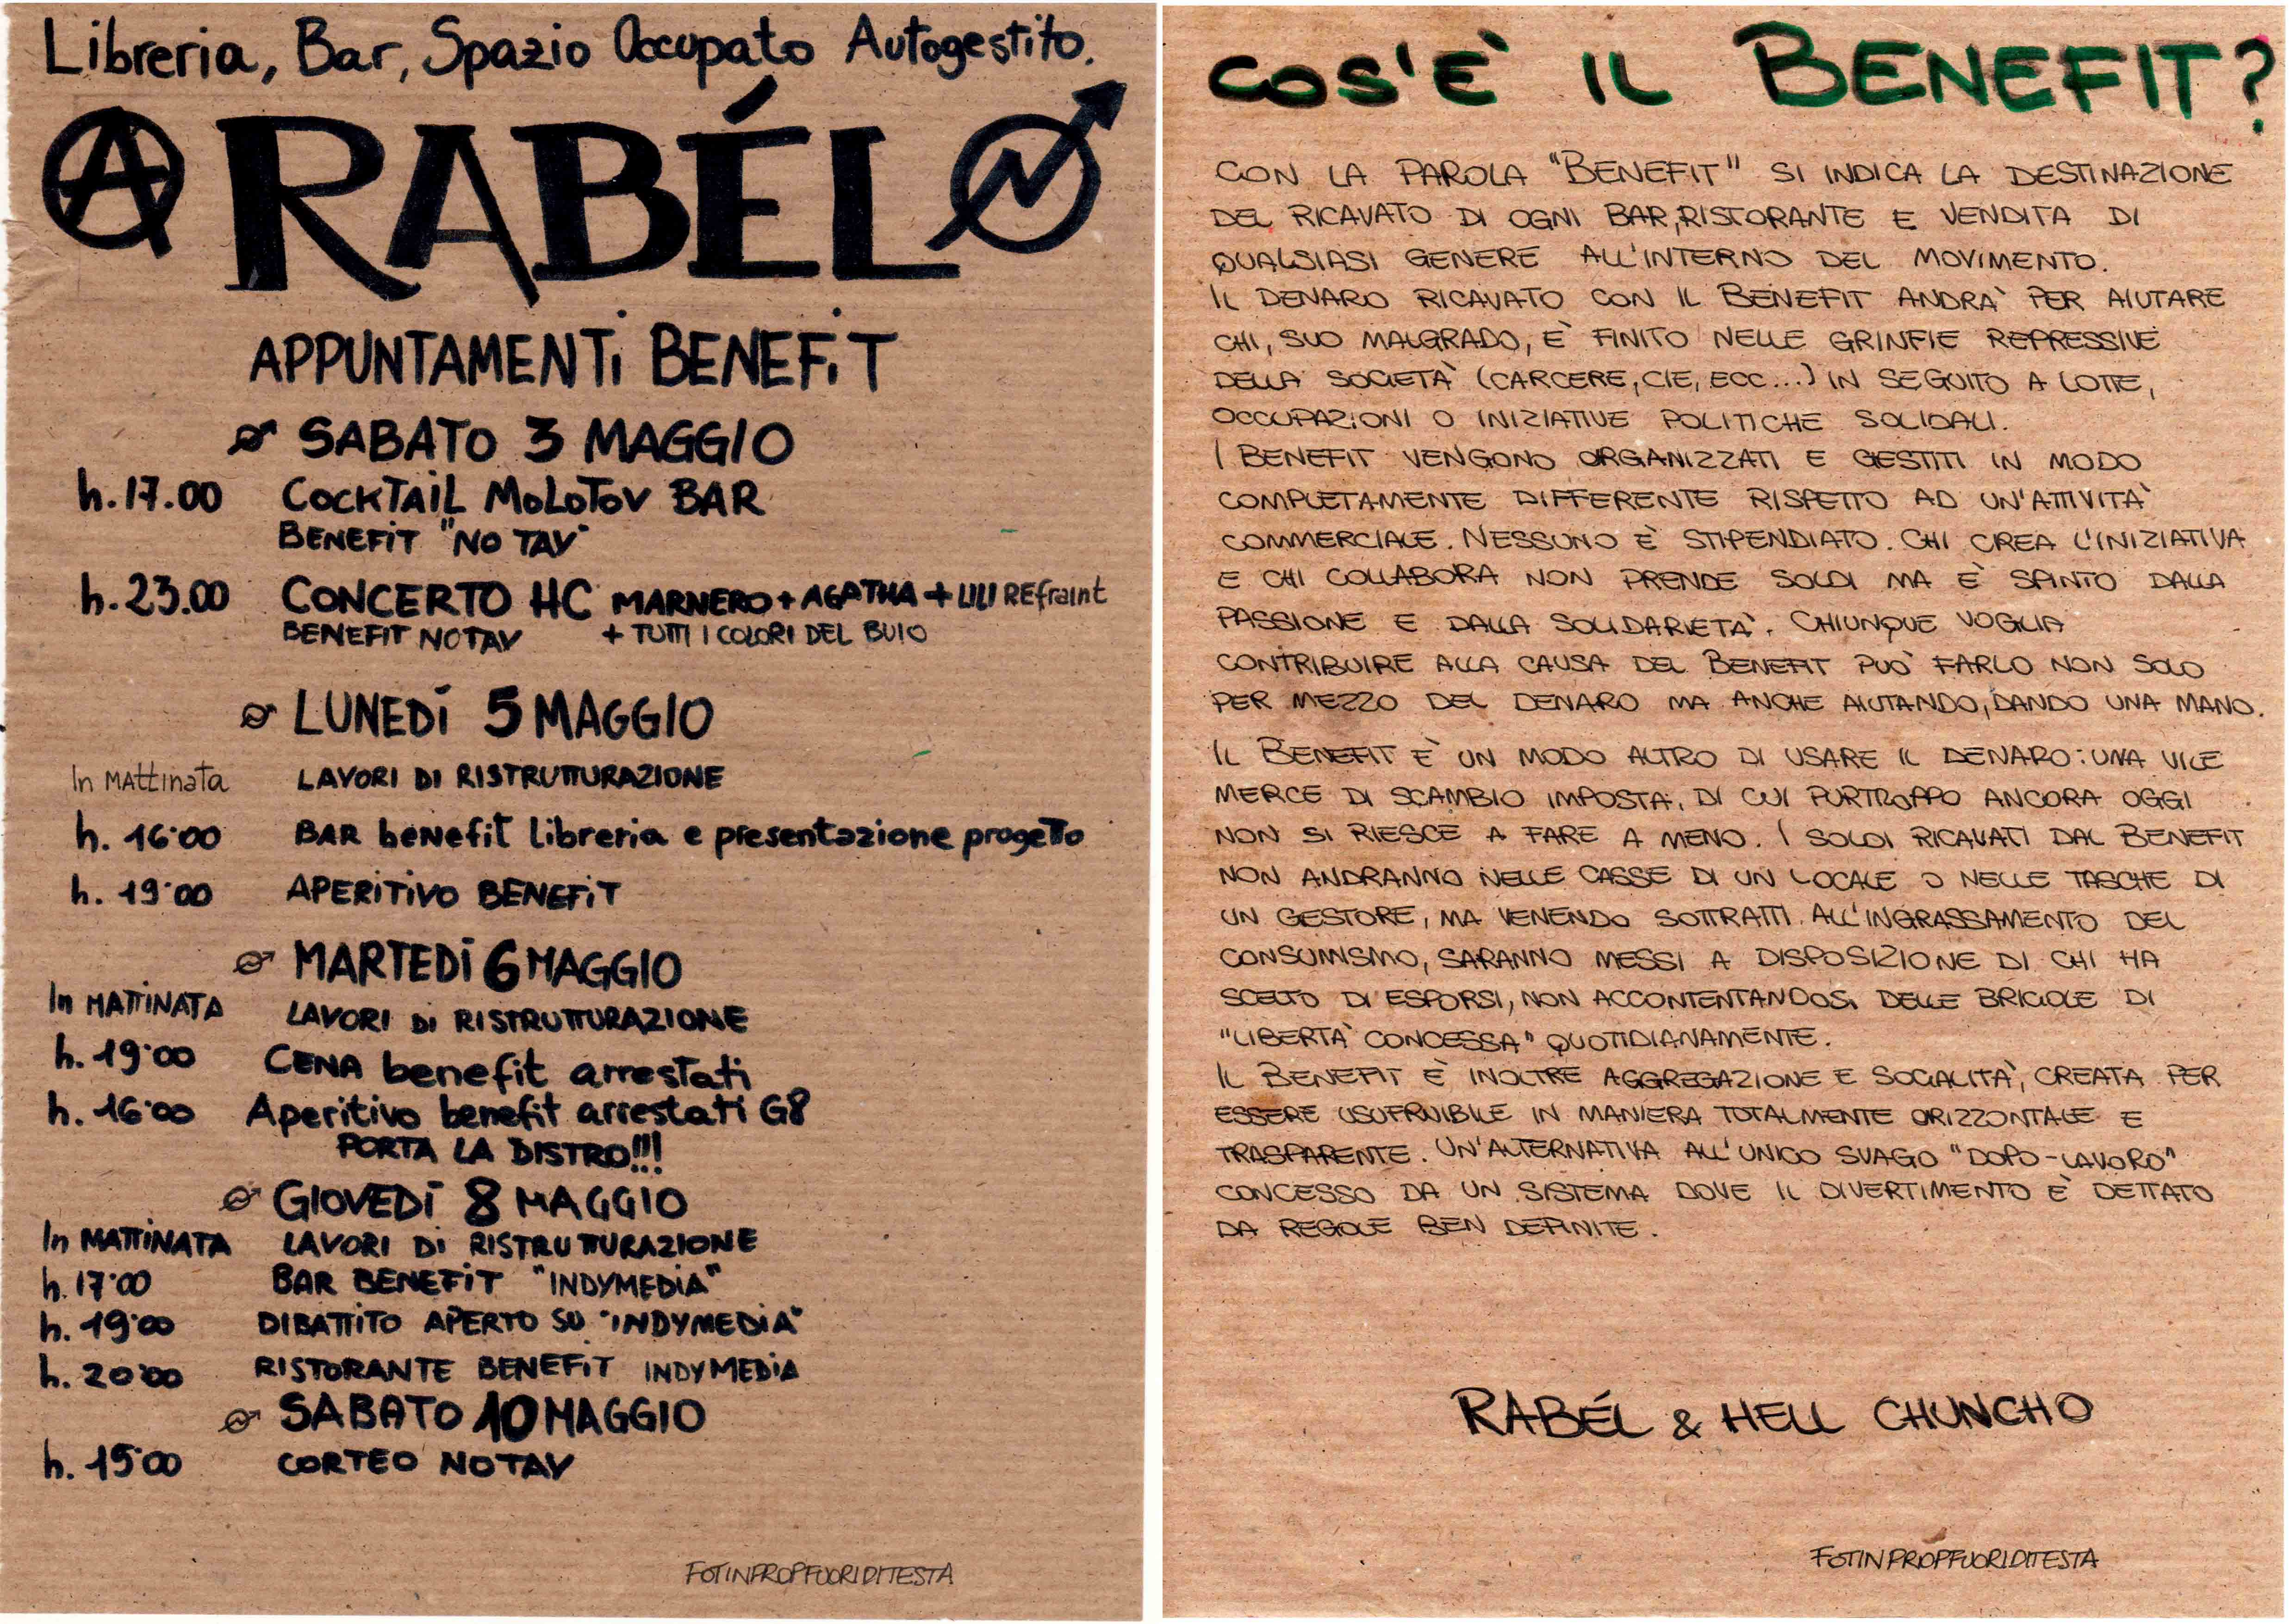 Libreria, Bar, Spazio Occupato Autogestito.
RABÉL
APPUNTAMENTI BENEFIT
SABATO 3 MAGGIO
h. 17.00 COCKTAIL MOLOTOV BAR
BENEFIT "NO TAV"
h. 23.00 CONCERTO HC MARNERO + AGATHA + LILI REfraint
BENEFIT NOTAV + TUTTI I COLORI DEL BUIO
LUNEDÌ 5 MAGGIO
In MAttinata LAVORI DI RISTRUTTURAZIONE
h. 16:00 BAR benefit libreria e presentazione progetto
h. 19:00 APERITIVO BENEFIT
MARTEDÌ 6 MAGGIO
In MATTINATA LAVORI DI RISTRUTTURAZIONE
h. 19:00 CENA benefit arrestati
h. 16:00 Aperitivo benefit arrestati G8
PORTA LA DISTRO!!!
GIOVEDÌ 8 MAGGIO
In MATTINATA LAVORI DI RISTRUTTURAZIONE
h. 17:00 BAR BENEFIT "INDYMEDIA"
h. 19:00 DIBATTITO APERTO SU "INDYMEDIA"
h. 20:00 RISTORANTE BENEFIT INDYMEDIA
SABATO 10 MAGGIO
h. 15:00 CORTEO NOTAV
FOTINPROPFUORIDITESTA
COS'È IL BENEFIT?
CON LA PAROLA "BENEFIT" SI INDICA LA DESTINAZIONE
DEL RICAVATO DI OGNI BAR, RISTORANTE E VENDITA DI
QUALSIASI GENERE ALL'INTERNO DEL MOVIMENTO.
IL DENARO RICAVATO CON IL BENEFIT ANDRA' PER AIUTARE
CHI, SUO MALGRADO, È FINITO NELLE GRINFIE REPRESSIVE
DELLA SOCIETÀ (CARCERE, CIE, ECC...) IN SEGUITO A LOTTE,
OCCUPAZIONI O INIZIATIVE POLITICHE SOLIDALI.
I BENEFIT VENGONO ORGANIZZATI E GESTITI IN MODO
COMPLETAMENTE DIFFERENTE RISPETTO AD UN'ATTIVITÀ
COMMERCIALE. NESSUNO È STIPENDIATO. CHI CREA L'INIZIATIVA
E CHI COLLABORA NON PRENDE SOLDI MA È SPINTO DALLA
PASSIONE E DALLA SOLIDARIETÀ. CHIUNQUE VOGLIA
CONTRIBUIRE ALLA CAUSA DEL BENEFIT PUÒ FARLO NON SOLO
PER MEZZO DEL DENARO MA ANCHE AIUTANDO, DANDO UNA MANO.
IL BENEFIT È UN MODO ALTRO DI USARE IL DENARO: UNA VILE
MERCE DI SCAMBIO IMPOSTA, DI CUI PURTROPPO ANCORA OGGI
NON SI RIESCE A FARE A MENO. I SOLDI RICAVATI DAL BENEFIT
NON ANDRANNO NELLE CASSE DI UN LOCALE O NELLE TASCHE DI
UN GESTORE, MA VENENDO SOTTRATTI ALL'INGRASSAMENTO DEL
CONSUMISMO, SARANNO MESSI A DISPOSIZIONE DI CHI HA
SCELTO DI ESPORSI, NON ACCONTENTANDOSI DELLE BRICIOLE DI
"LIBERTÀ CONCESSA" QUOTIDIANAMENTE.
IL BENEFIT È INOLTRE AGGREGAZIONE E SOCIALITÀ, CREATA PER
ESSERE USUFRUIBILE IN MANIERA TOTALMENTE ORIZZONTALE E
TRASPARENTE. UN'ALTERNATIVA ALL'UNICO SVAGO "DOPO-LAVORO"
CONCESSO DA UN SISTEMA DOVE IL DIVERTIMENTO È DETTATO
DA REGOLE BEN DEFINITE.
RABÉL & HELL CHUNCHO
FOTINPROPFUORIDITESTA